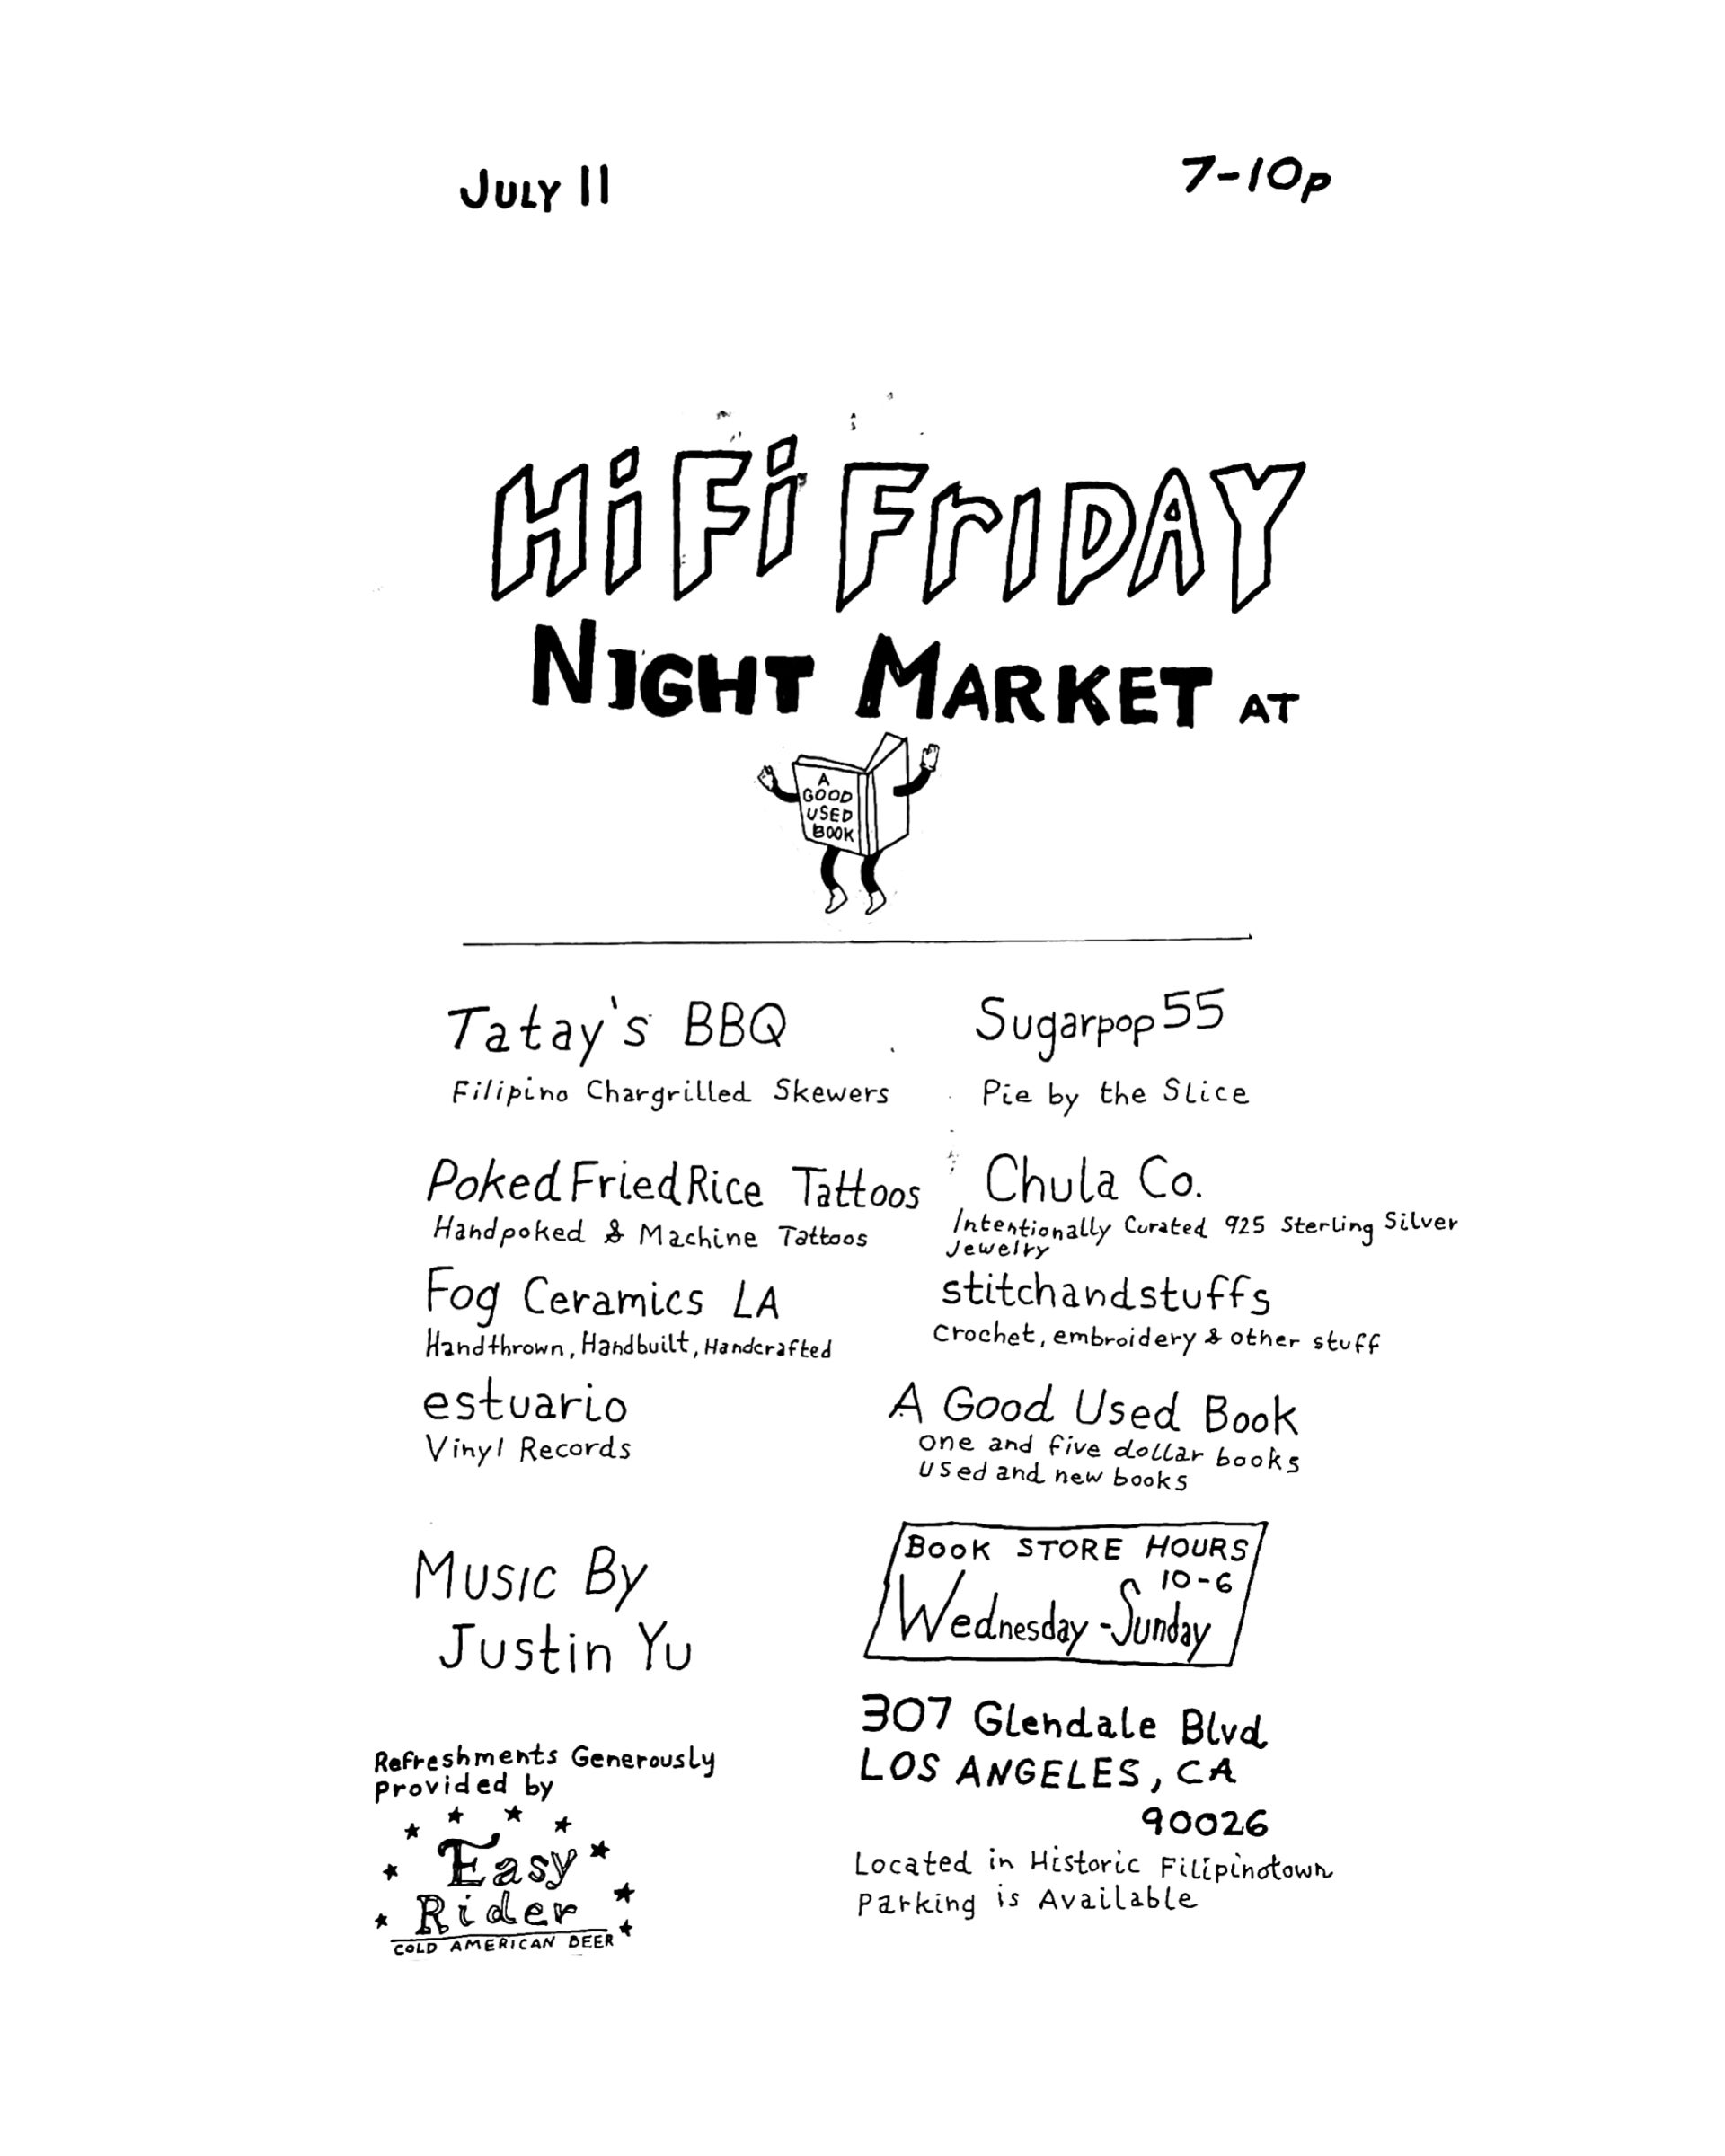 JULY 11
7-10p
HiFi FrIDAY
NIGHT MARKET AT
A
GOOD
USED
BOOK
Tatay's BBQ
Filipino Chargrilled Skewers
Sugarpop55
Pie by the Slice
PokedFriedRice Tattoos
Handpoked & Machine Tattoos
Chula Co.
Intentionally Curated 925 Sterling Silver
Jewelry
Fog Ceramics LA
Handthrown, Handbuilt, Handcrafted
stitchandstuffs
Crochet, embroidery & other stuff
estuario
Vinyl Records
A Good Used Book
One and five dollar books
Used and new books
Music By
Justin Yu
BOOK STORE HOURS
10-6
Wednesday-Sunday
Refreshments Generously
Provided by
Easy
Rider
COLD AMERICAN BEER
307 Glendale Blvd
LOS ANGELES, CA
90026
Located in Historic Filipinotown
Parking is Available